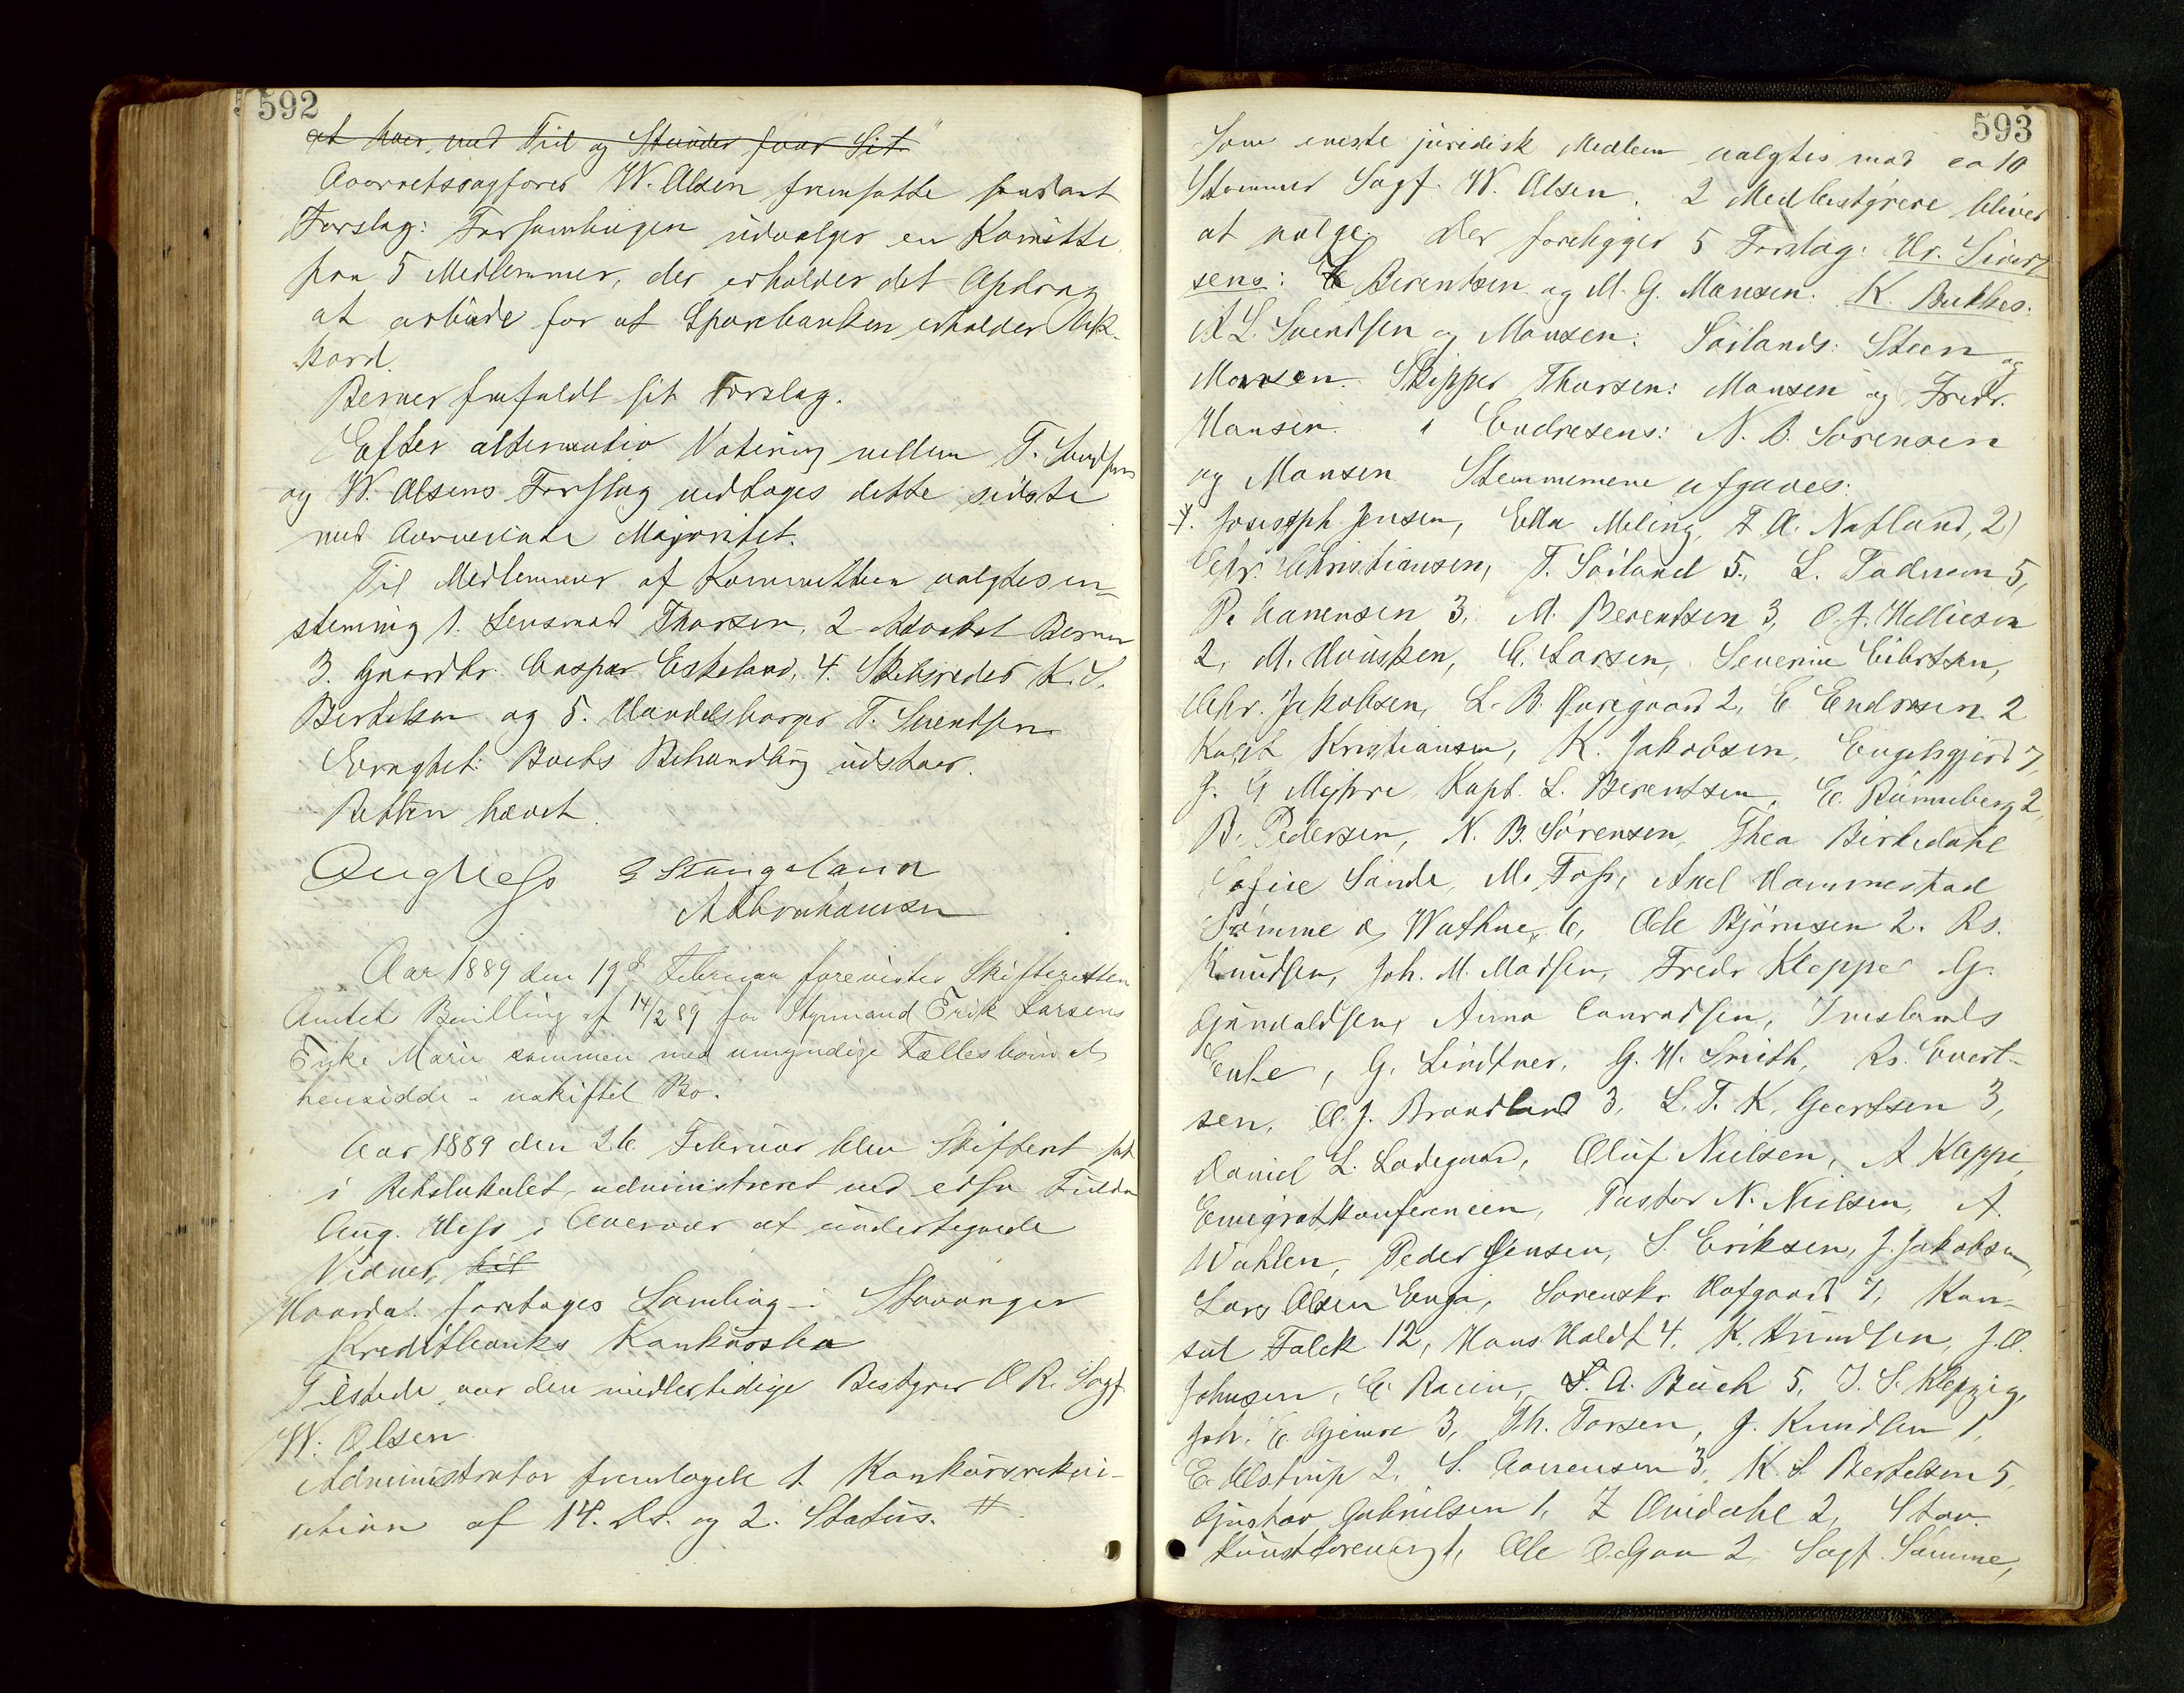 592
at hver med Tid og Stunder faar Sit"
Overretssagfører W. Olsen fremsatte saadant
Forslag: Forsamlingen udvælger en Komitte
paa 5 Medlemmer, der erholder det Opdrag
at arbeide for at Sparebanken erholder Ak-
kord.
Berner frafaldt sit Forslag.
Efter alternativ Votering mellem T. Svendsens
og W. Olsens Forslag vedtoges dette sidste
med overveiende Majoritet.
Til Medlemmer af Komitteen valgtes en-
stemmig 1. Lensmand Thorsen, 2. Advokat Berner
3. Gaardbr. Caspar Eskeland, 4. Skibsreder K. S.
Bertelsen og 5. Handelsborger T. Svendsen
Boets Behandling udstaar.
Retten hævet.
Aug Hess G Stangeland
A Abrahamsen
Aar 1889 den 19d Februar forevistes Skifteretten
Amtets Bevilling af 14/2 89 for Styrmand Erik Larsens
Enke Marie sammen med umyndige Fællesbørn at
hensidde i uskiftet Bo.
Aar 1889 den 26. Februar blev Skifteret sat
i Retslokalet, administreret ved edsv. Fuldm
Aug. Hess i Overvær af undertegnede
Vidner,
Hvorda: foretoges Samling i Stavanger
Kreditbanks Konkursbo
Tilstede var den midlertidige Bestyrer O.R. Sagf.
W. Olsen.
Administrator fremlagde 1. Konkursrekvi-
sition af 14. ds. og 2. Status. #
593
Som eneste juridisk Medlem valgtes mod ca 10
Stemmer Sagf. W. Olsen. 2 Medbestyrere bliver
at vælge. Der foreligger 5 Forslag: Hr. Sivert
sens: Berentsen og M. G. Mansen. K. Bukkes:
A L. Svendsen og Monsen. Söilands: Steen og
Monsen. Skipper Thorsen: Monsen og Fredr.
Hansen. " Endresens: N. B. Sörensen
og Monsen Stemmerne afgaves:
Joseseph Jensen, Ella Meling, T. A. Natland, 2)
Chr. Christiansen, T. Söiland 5, L. Tadnem 5,
P. Aanensen 3, M. Berentsen 3, O. J. Helliesen
2, A. Housken, E. Larsen, Severine Eilertsen,
Chr. Jakobsen, L. B. 2, E Endresen 2
Kapt Kristiansen, K. Jakobsen, Engelsgjerd 7,
J. G Myhre, Kapt. L. Berentsen, E. Rönneberg 2,
B. Pedersen, N. B. Sörensen, Thea Birkedahl
Sofie Sande, M. Foss, Axel Hammestad
Sømme & Wathne, 6, Ole Bjørnsen 2. Rs.
Knudsen, Joh. M. Madsen, Fredr Kleppe G.
Gundaldsen, Anna Conradsen, Inislands
Enke, G. Lindtner, G. H. Smith, Rs. Evert-
sen, O. J. Brandland 3, L. T. K. Geertsen 3,
Daniel L. Ladegaard, Oluf Nielsen, A Kleppe,
Emigratkonferencen, Pastor N. Nielsen, A.
Wahlen, Peder Jensen, S. Eriksen, J. Jakobsen,
Lars Olsen Enga, Sorenskr Hofgaard 7, Kon-
sul Falck 12, Hans Holdt 4, K. Knudsen, J. O.
Johnsen, E. Racin, A. Buch 5, J. S. Klepzig,
Joh. E. Gjemre 3, Th. Torsen, J. Knudsen 1,
E. Alstrup 2, S. Aanensen 3, K. S Bertelsen 5,
Gustav Gabrielsen 1, Z Qvidahl 2, Stav.
Kunstforening 1, Ole O. Gaa 2 Sagf. Sömme,